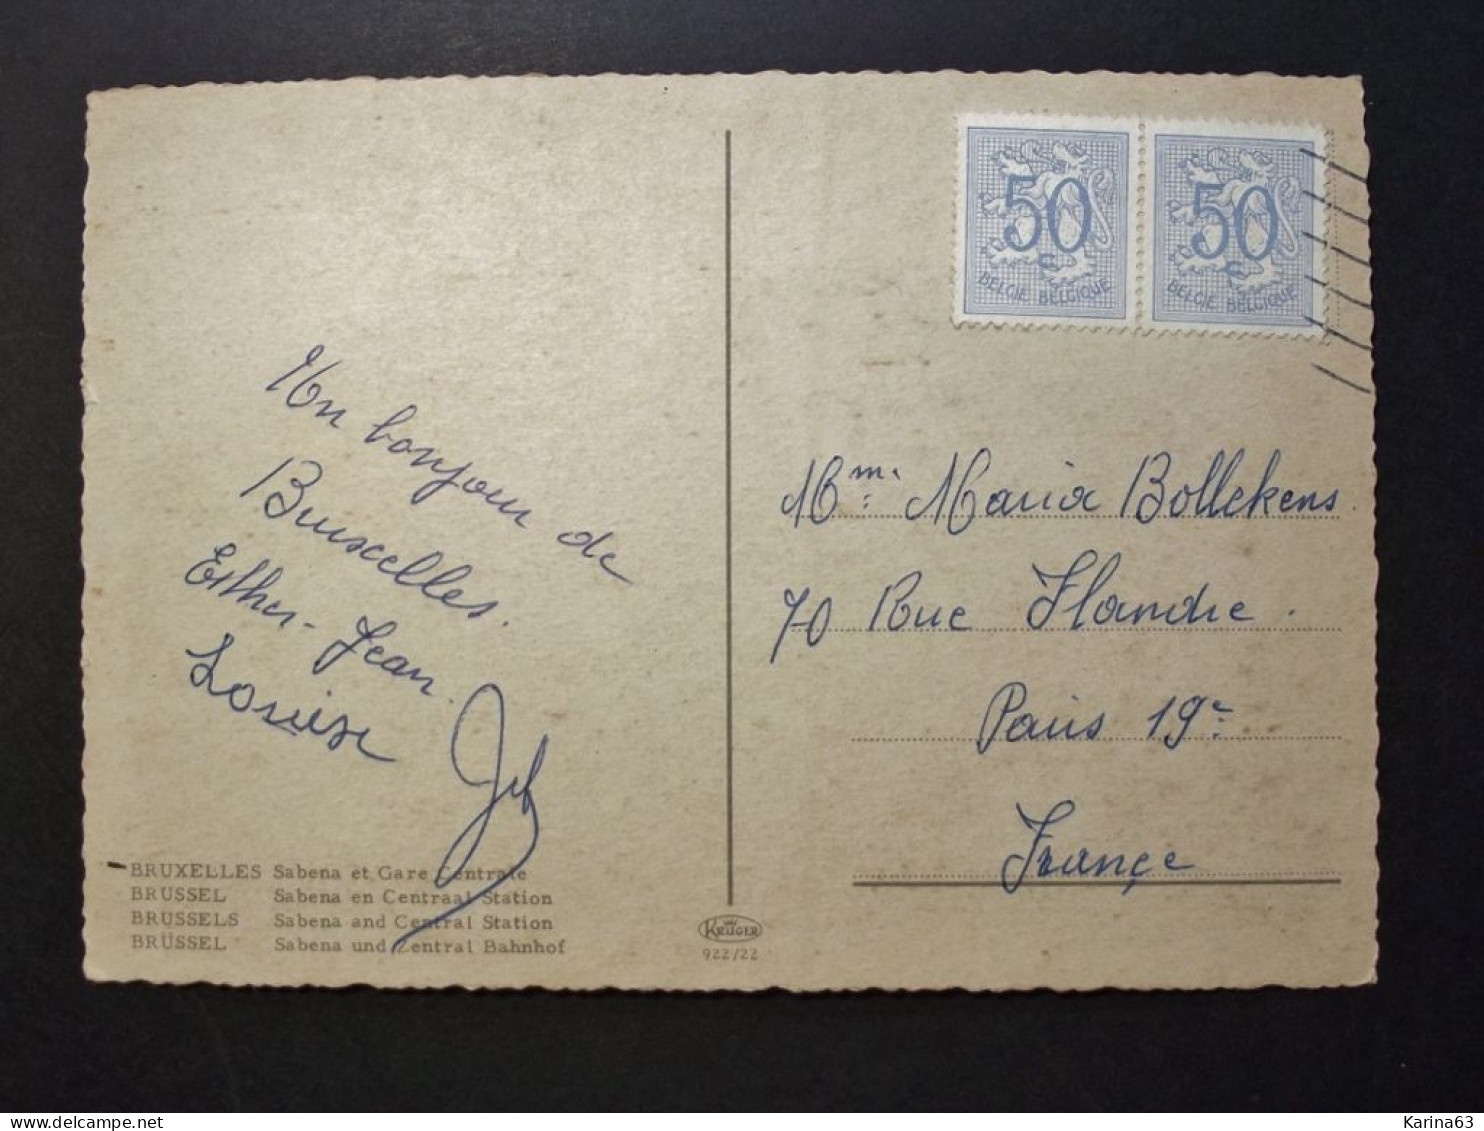 50
BELGIE BELGIQUE
50
BELGIE BELGIQUE
Un bonjour de
Bruxelles.
Esther - Jean.
Louise
Mme. Maria Bollekens.
70 Rue Flandre.
Paris 19e
France
BRUXELLES Sabena et Gare Centrale
BRUSSEL Sabena en Centraal Station
BRUSSELS Sabena and Central Station
BRÜSSEL Sabena und Zentral Bahnhof
KRÜGER
922/22
Karina63